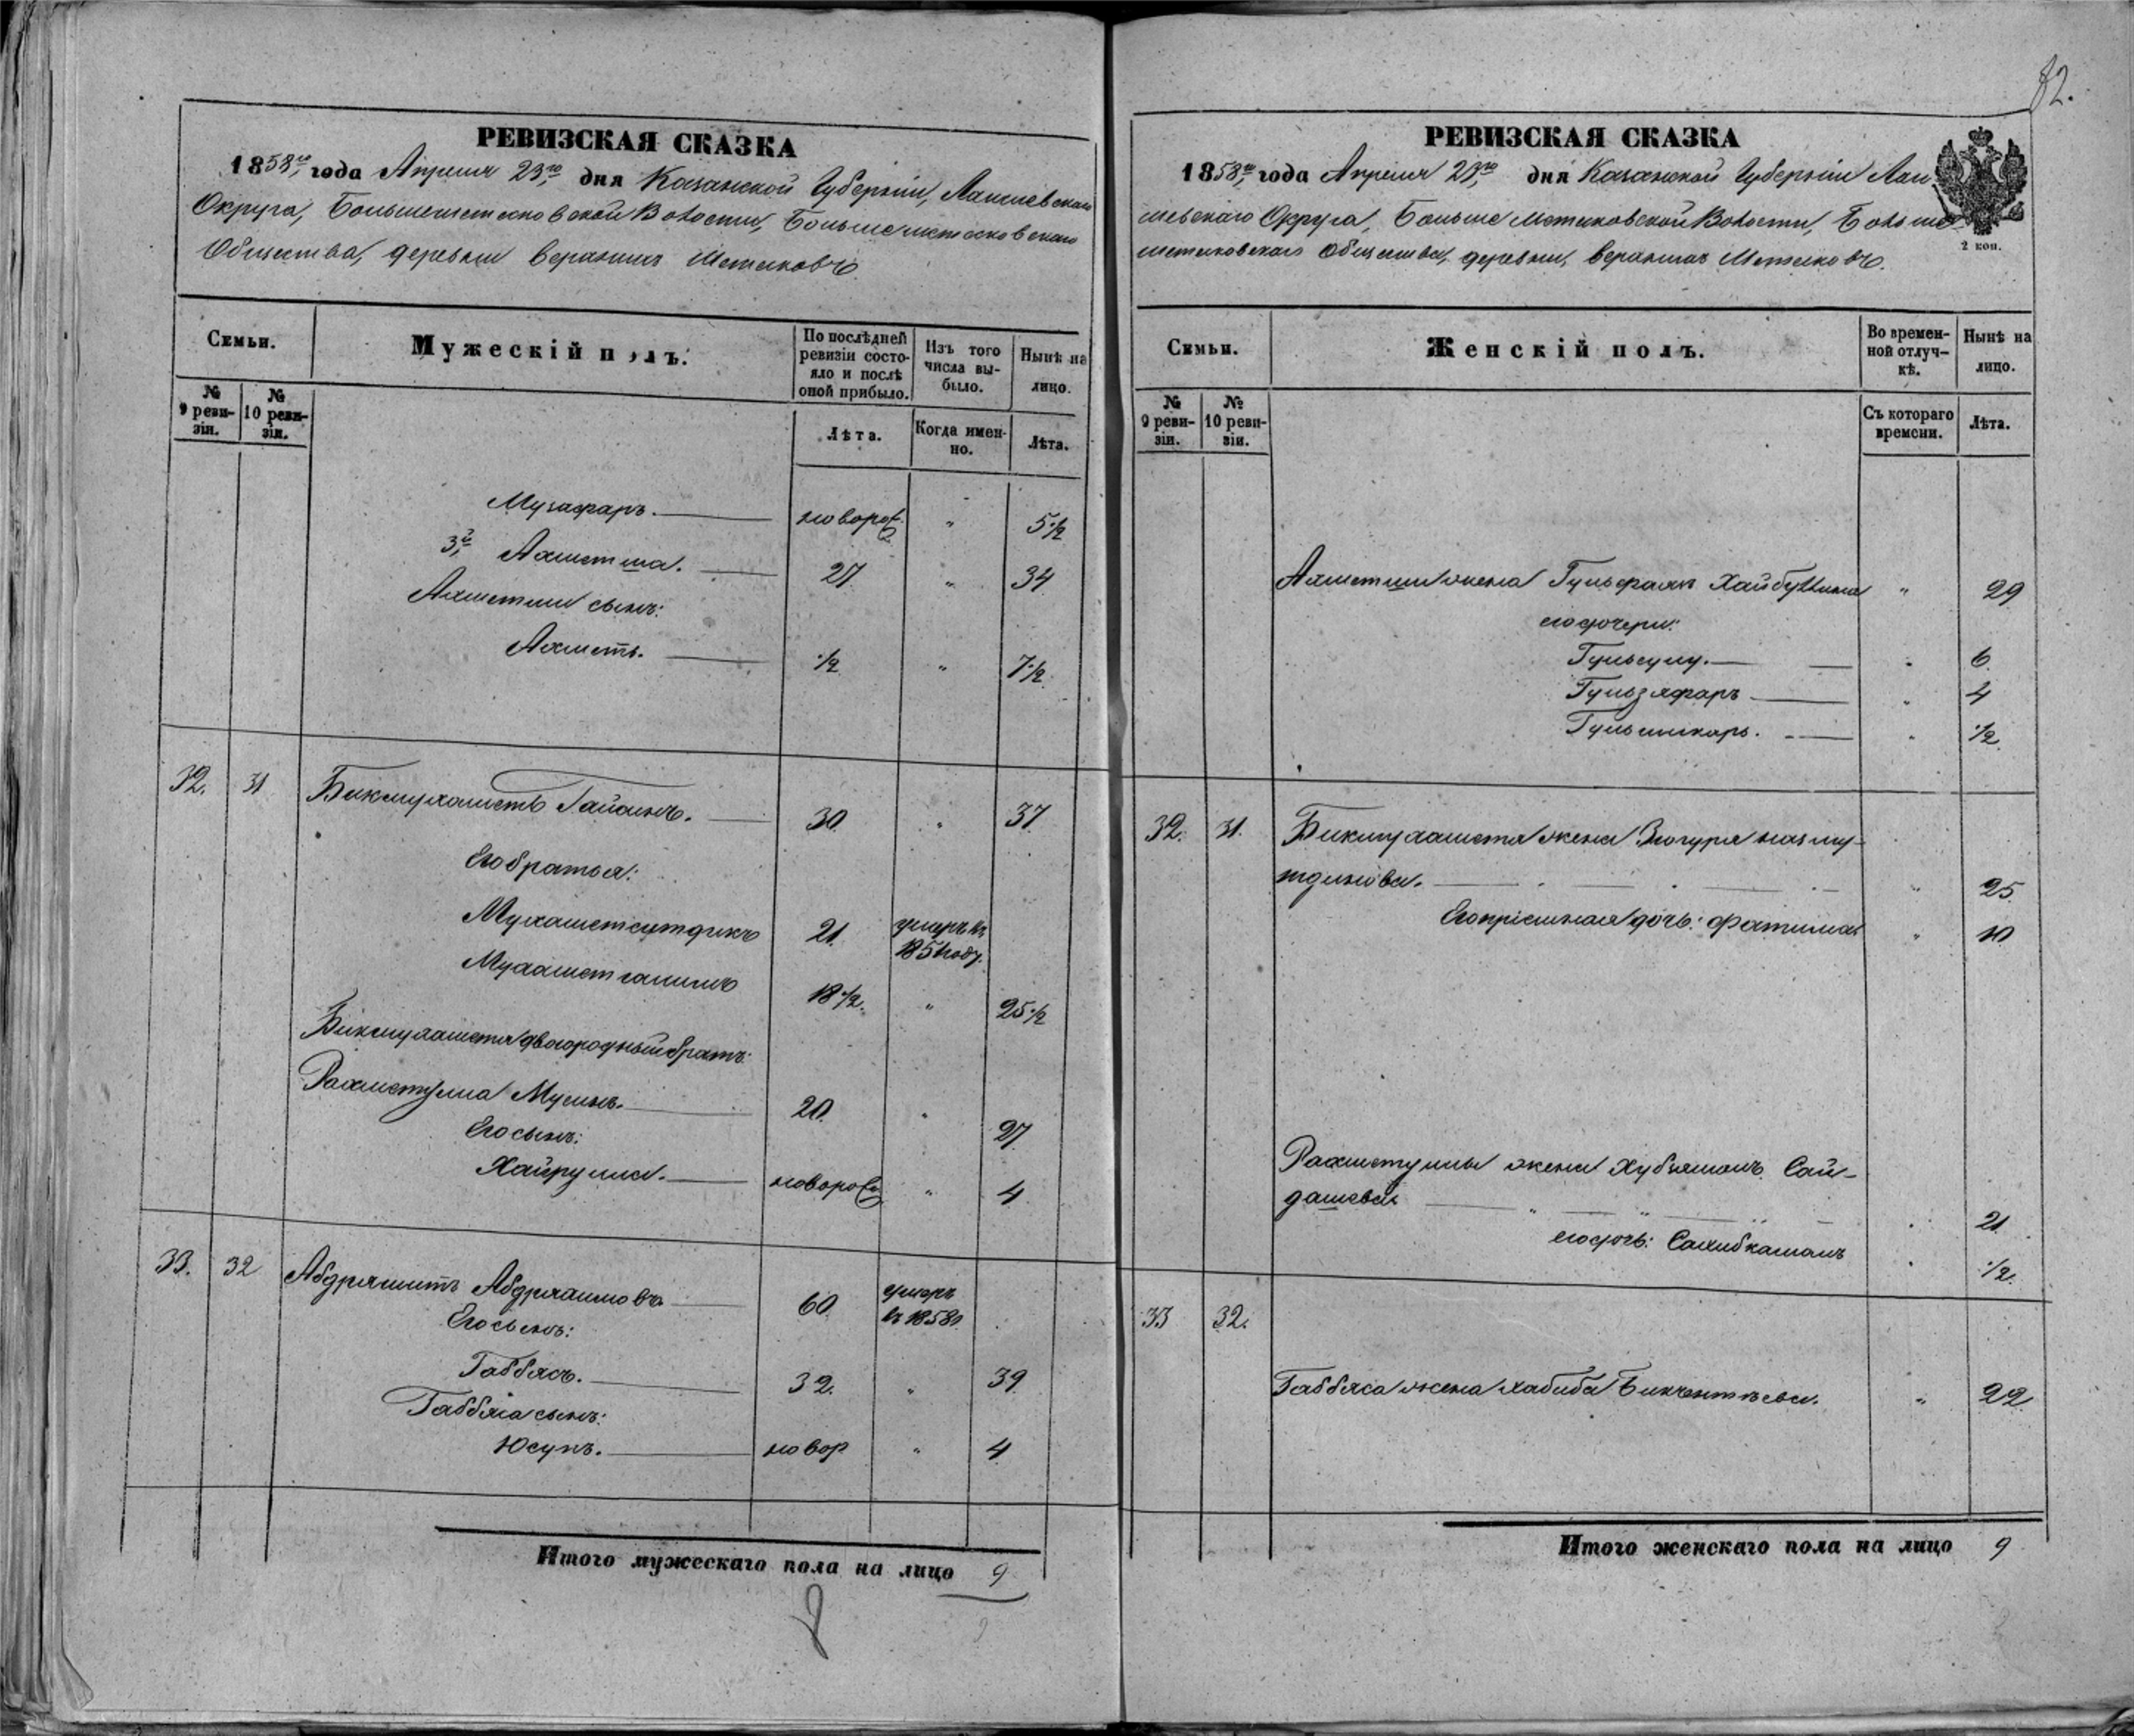 82.
РЕВИЗСКАЯ СКАЗКА
1858го года Апреля 23го дня Казанской Губерніи, Лаишевскаго
Округа, Большеметесковской Волости, Большеметесковскаго
Общества, деревни верхнихъ Метесковъ
Семьи.
Мужескій полъ.
По послѣдней ревизіи состояло и послѣ оной прибыло.
Изъ того числа выбыло.
Нынѣ на лицо.
№ 9 ревизіи.
№ 10 ревизіи.
Лѣта.
Когда именно.
Лѣта.
Музафаръ. новорож. " 5½
3й Ахметша. 27 " 34
Ахметши сынъ:
Ахметъ. ½ " 7½
32. 31 Бикмухаметъ Гайсинъ. 30 " 37
Его братья:
Мухаметситдикъ 21 умеръ въ 1851 году.
Мухаметгалимъ 18½ " 25½
Бикмухаметя двоюродный братъ:
Рахметулла Мусинъ. 20 " 27
Его сынъ:
Хайрулла. новорож " 4
33. 32 Абдряшитъ Абдряхимовъ 60 умеръ въ 1858г.
Его сынъ:
Габбясъ. 32. " 39
Габбяса сынъ:
Юсупъ. новор " 4
Итого мужескаго пола на лицо 9
РЕВИЗСКАЯ СКАЗКА
1858го года Апреля 23го дня Казанской Губерніи Лаи
шевскаго Округа, Больше Метесковской Волости, Больше
метесковскаго Общества, деревни, верхнихъ Метесковъ.
2 коп.
Семьи.
Женскій полъ.
Во временной отлучкѣ.
Нынѣ на лицо.
№ 9 ревизіи.
№ 10 ревизіи.
Съ котораго времени.
Лѣта.
Ахметши жена Хайбуллина " 29
его дочери:
Гульсулу. " 6
Гульзяфаръ " 4
" ½
32. 31. Бикмухаметя жена Зюгуря назму-
тдинова. " 25
Его пріемная дочь: Фатима " 10
Рахметуллы жена Хубзямалъ Сай-
дашева " 21
его дочь: Сахибжамалъ " ½
33 32.
Габбяса жена хабиба Бикчентѣева. " 22
Итого женскаго пола на лицо 9